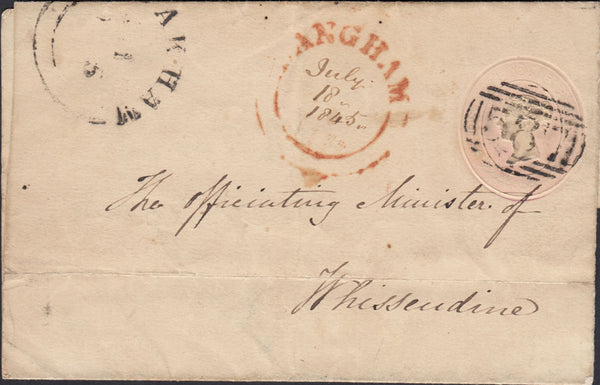 AKHAM
LANGHAM
July
18
1845
The officiating Minister of
Whissendine